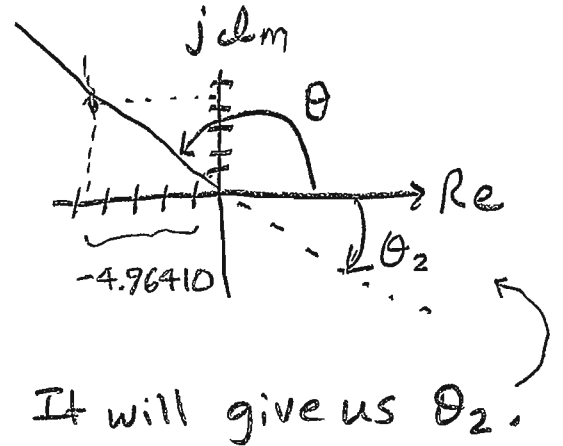 jIm
θ
Re
θ₂
-4.96410
It will give us θ₂.